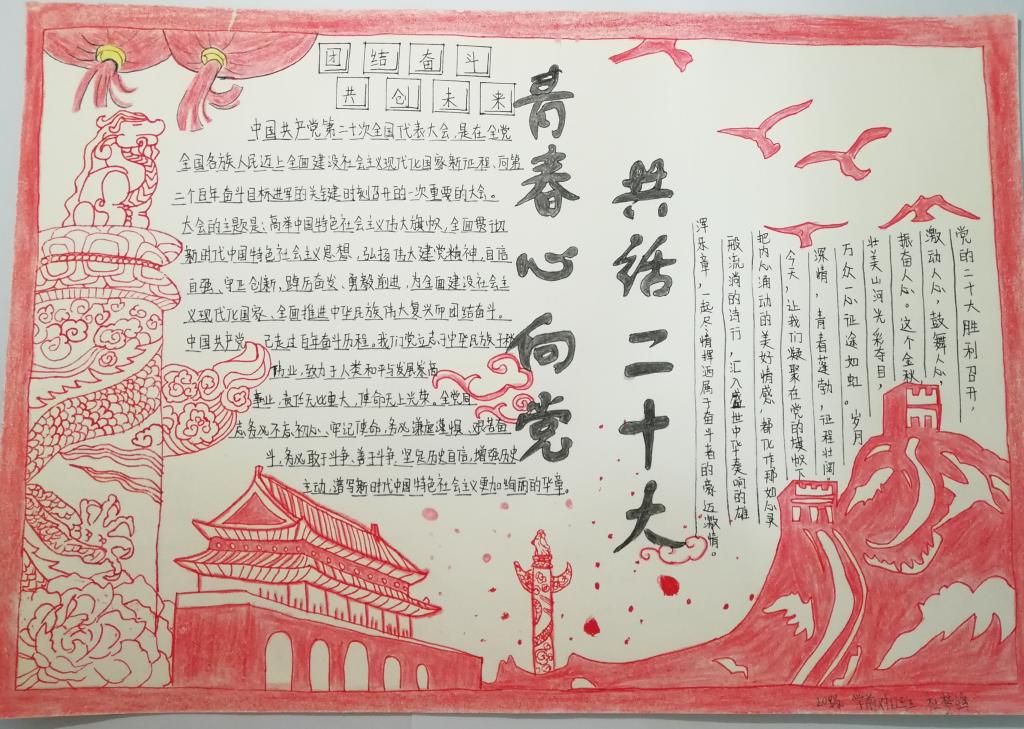 团结奋斗
共创未来
中国共产党第二十次全国代表大会，是在全党
全国各族人民迈上全面建设社会主义现代化国家新征程、向第
二个百年奋斗目标进军的关键时刻召开的一次重要的大会。
大会的主题是：高举中国特色社会主义伟大旗帜，全面贯彻
新时代中国特色社会主义思想，弘扬伟大建党精神，自信
自强、守正创新，踔厉奋发、勇毅前进，为全面建设社会主
义现代化国家、全面推进中华民族伟大复兴而团结奋斗。
中国共产党 已走过百年奋斗历程。我们党立志于中华民族千秋
伟业，致力于人类和平与发展崇高
事业，责任无比重大，使命无上光荣。全党同
志务必不忘初心、牢记使命，务必谦虚谨慎、艰苦奋
斗，务必敢于斗争、善于斗争，坚定历史自信，增强历史
主动，谱写新时代中国特色社会主义更加绚丽的华章。
青春心向党
共话二十大
党的二十大胜利召开，
激动人心，鼓舞人心，
振奋人心。这个金秋
壮美山河光彩夺目，
万众一心征途如虹。岁月
深情，青春蓬勃，征程壮阔。
今天，让我们凝聚在党的旗帜下
把内心涌动的美好情感，都化作那如心灵
般流淌的诗行，汇入盛世中华奏响的雄
浑乐章，一起尽情挥洒属于奋斗者的豪迈激情。